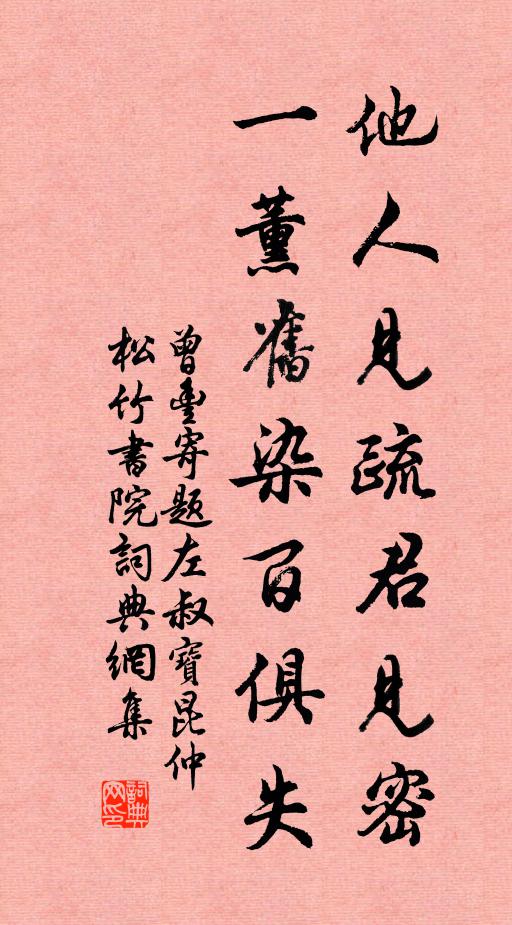 他人見疏君見密
一薰舊染百俱失
曾豐寄題左叔寶昆仲
松竹書院詞典網集
詞典
网印